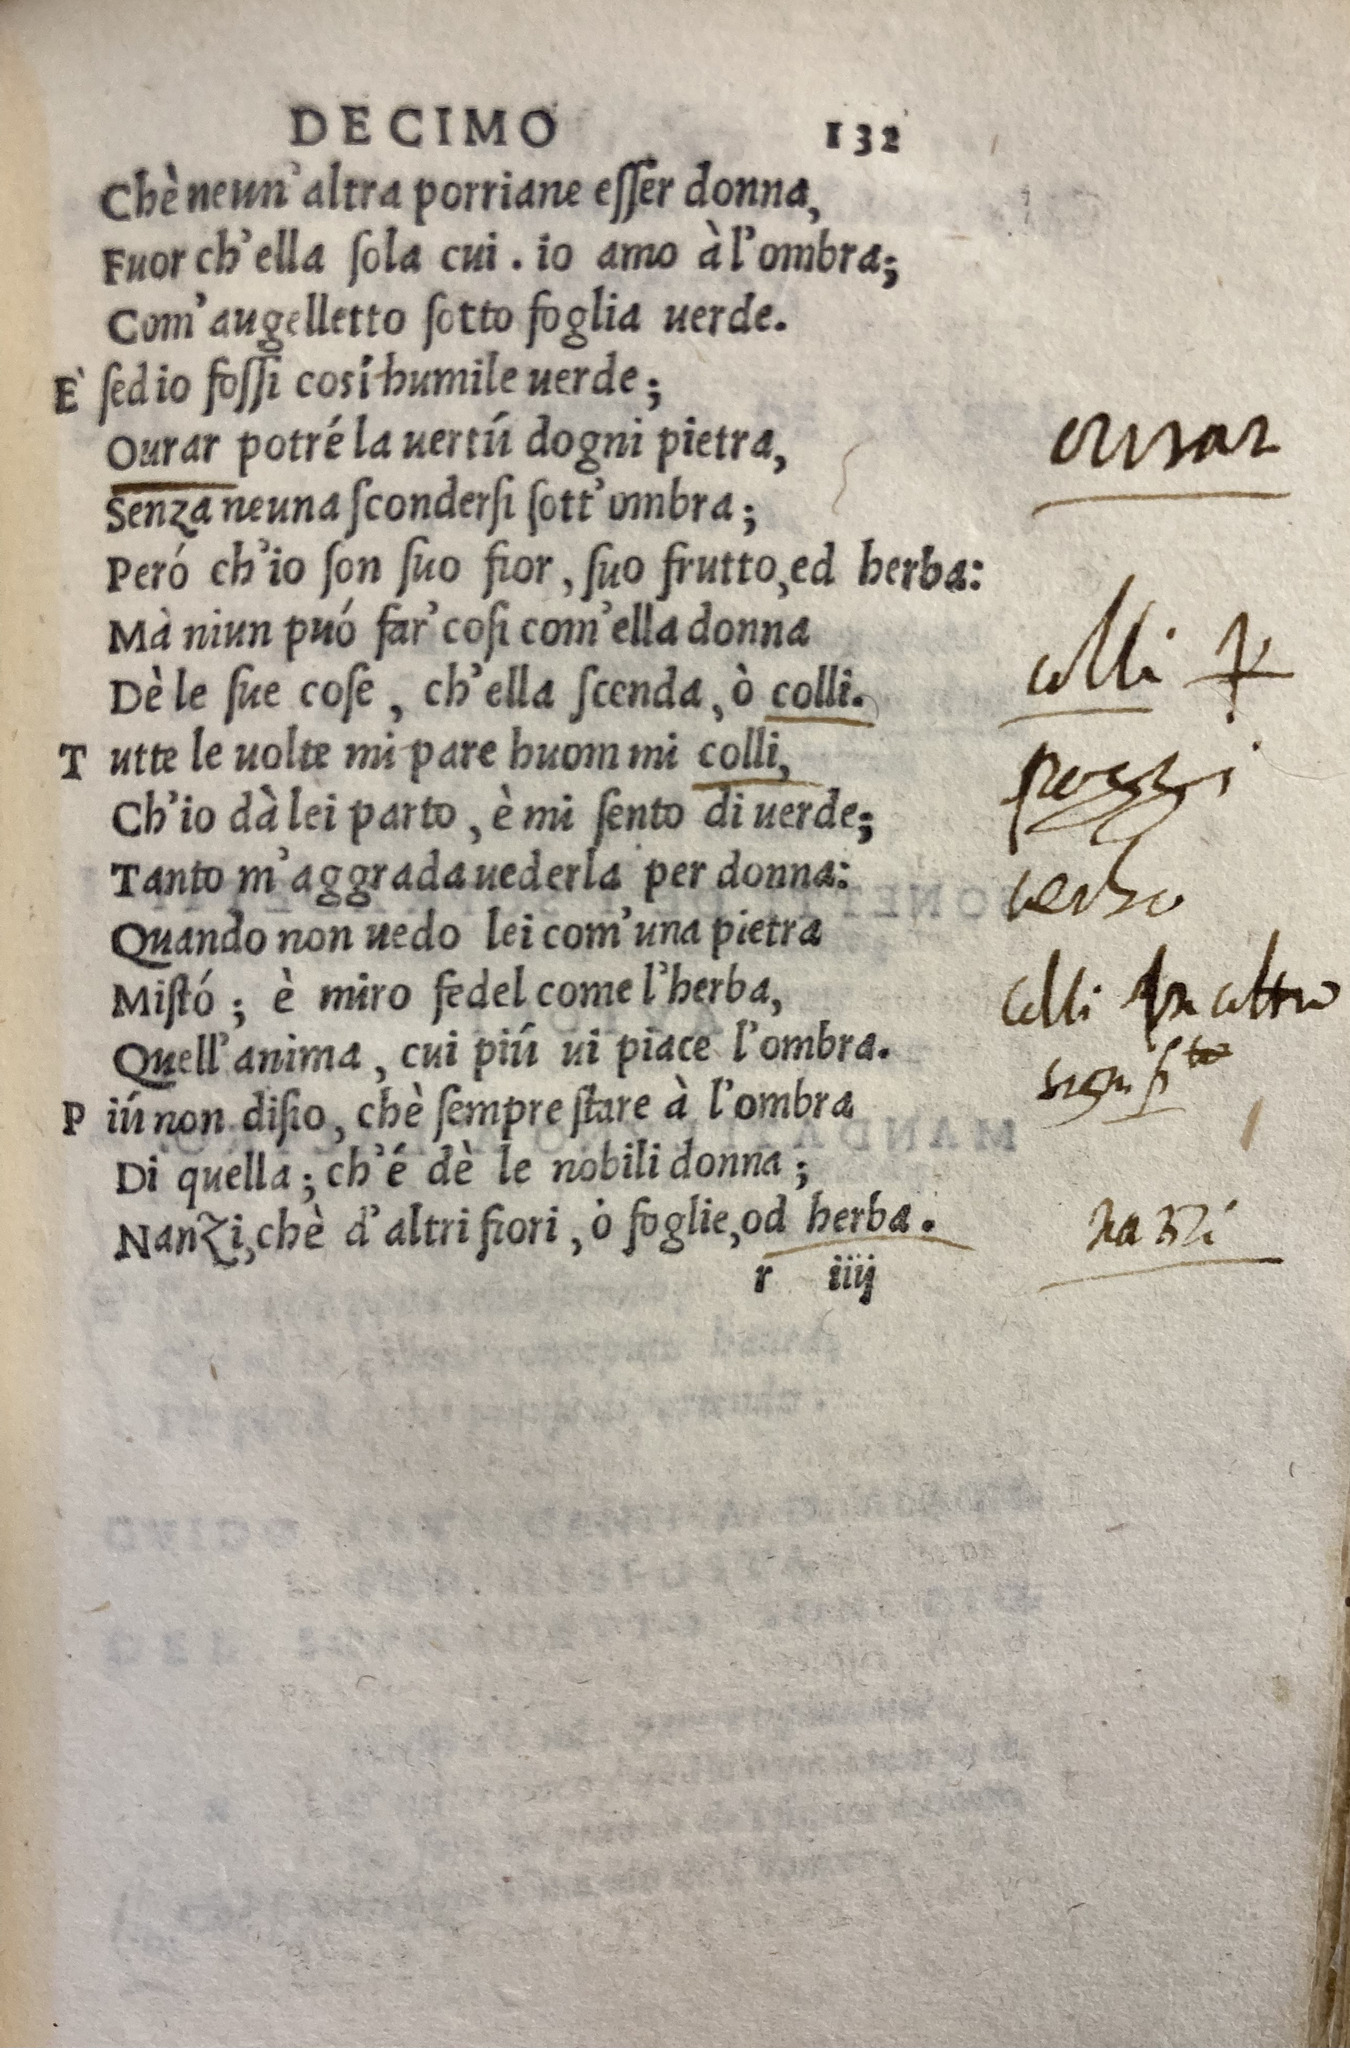 DECIMO 132
Chè neun' altra porriane eſſer donna,
Fuor ch'ella ſola cui . io amo à l'ombra;
Com' augelletto ſotto foglia uerde.
E' ſed io foſſi cosí humile uerde;
Ourar potré la uertú dogni pietra,
ovrar
Senza neuna ſconderſi ſott' ombra;
Peró ch'io ſon ſuo fior, ſuo frutto, ed herba:
Mà niun puó far' coſi com'ella donna
Dè le ſue coſe, ch'ella ſcenda, ò colli.
colli
poggi
Tutte le uolte mi pare huom mi colli,
Ch'io dà lei parto, è mi ſento di uerde;
Tanto m'aggrada uederla per donna:
verbo
Quando non uedo lei com'una pietra
Miſtó; è miro fedel come l'herba,
colli altro
signifi
Quell' anima, cui piú ui piace l'ombra.
Piú non diſio, chè ſempre ſtare à l'ombra
Di quella; ch'é dè le nobili donna;
Nanzi, chè d'altri fiori, ò foglie, od herba.
nazi
r iiij